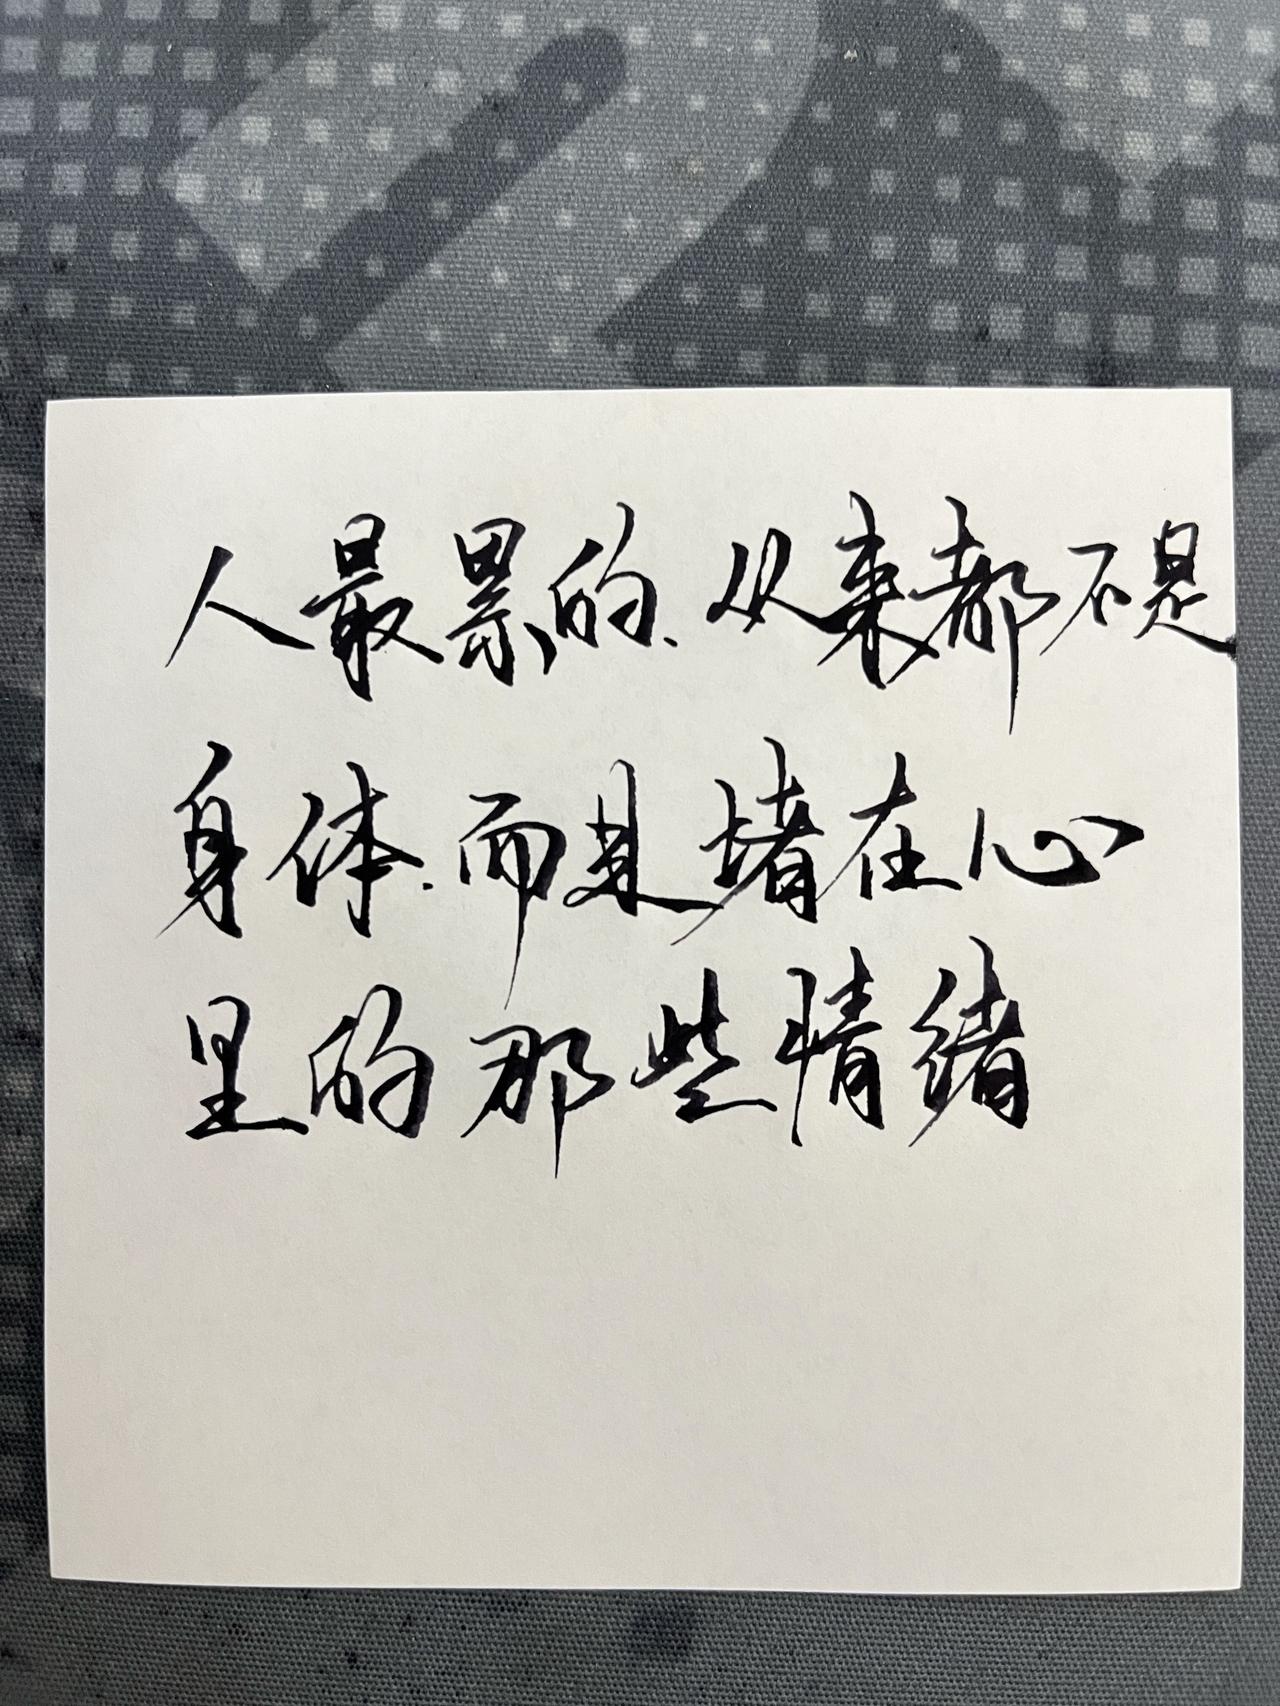 人最累的、从来都不是
身体.而是堵在心
里的那些情绪